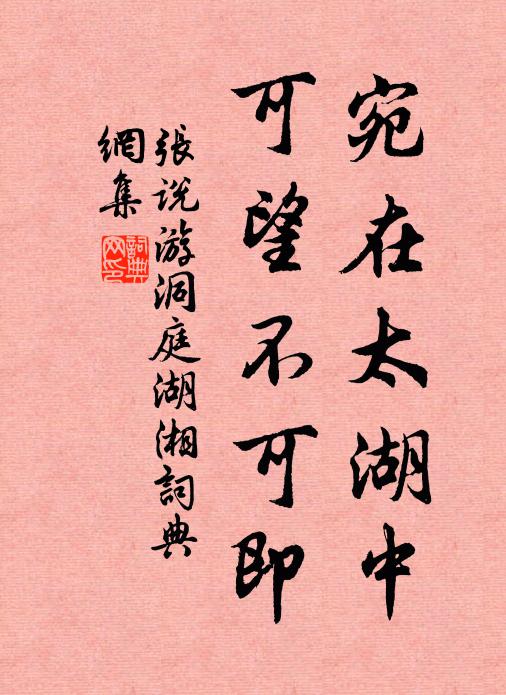 宛在太湖中
可望不可即
張説游洞庭湖湘詞典
網集
詞典網印